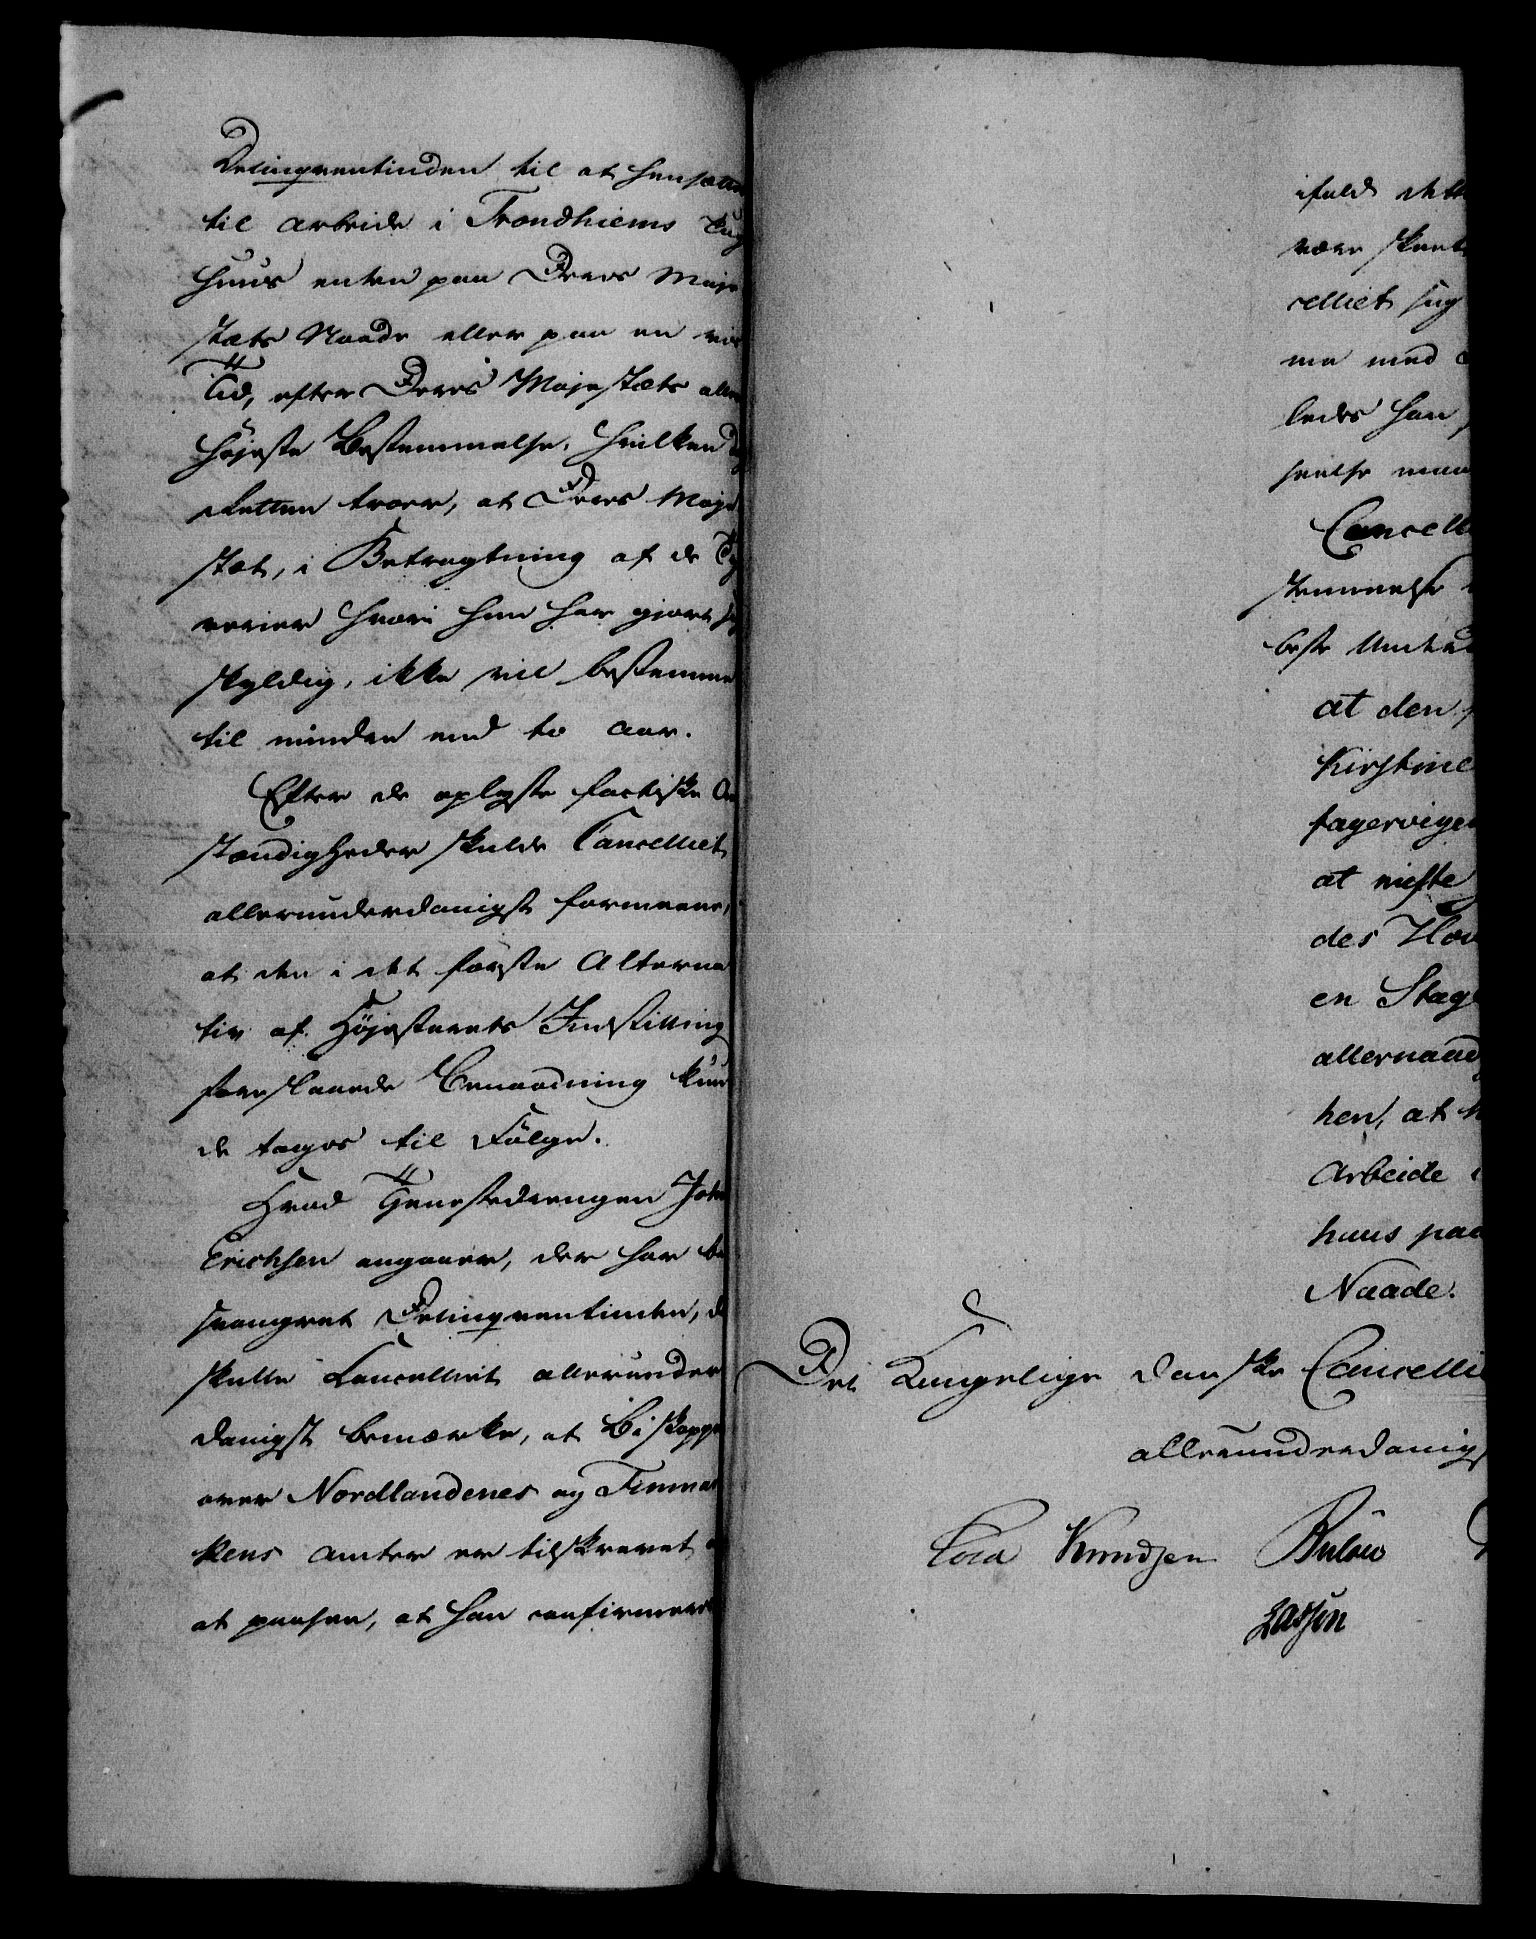 Delinqventinden til at hensætte
til Arbeide i Trondhiems Tug
huus enten paa Deres Maje
stæts Naade eller paa en vis
Tid, efter Deres Majestæts aller
høieste Bestemmelse, hvilken
Retten troer, at Deres Maje
stæt, i Betragtning af de Ty
verier hvori hun har gjort sig
skyldig, ikke vil bestemme
til mindre end to Aar.
Efter de oplyste factiske Om
stændigheder skulde Cancelliet
allerunderdanigst formeene,
at den i det første Alterna
tiv af Højesterets Indstilling
foreslaaede Benaadning kun
de tages til Følge.
Hvad Tjenestedrengen John
Erichsen angaaer, der har be
svangret Delinqventinden, da
skulle Cancelliet allerunder
danigst bemærke, at Biskoppen
over Nordlandenes og Finmar
kens Amter er tilskrevet
at paasee, at han confirmeres
ifald dette
være skeet
celliet sig
me med
ledes han
seelse maa
Cancelli
stemmelse
beste Umind
at den
Kirstine
fagervigen
at miste
des Hov
en Stage
allernaad
hen, at h
Arbeide i
huus paa
Naade.
Det Kongelige danske Cancelli
allerunderdanigs
Knudsen Bülow
Lassen